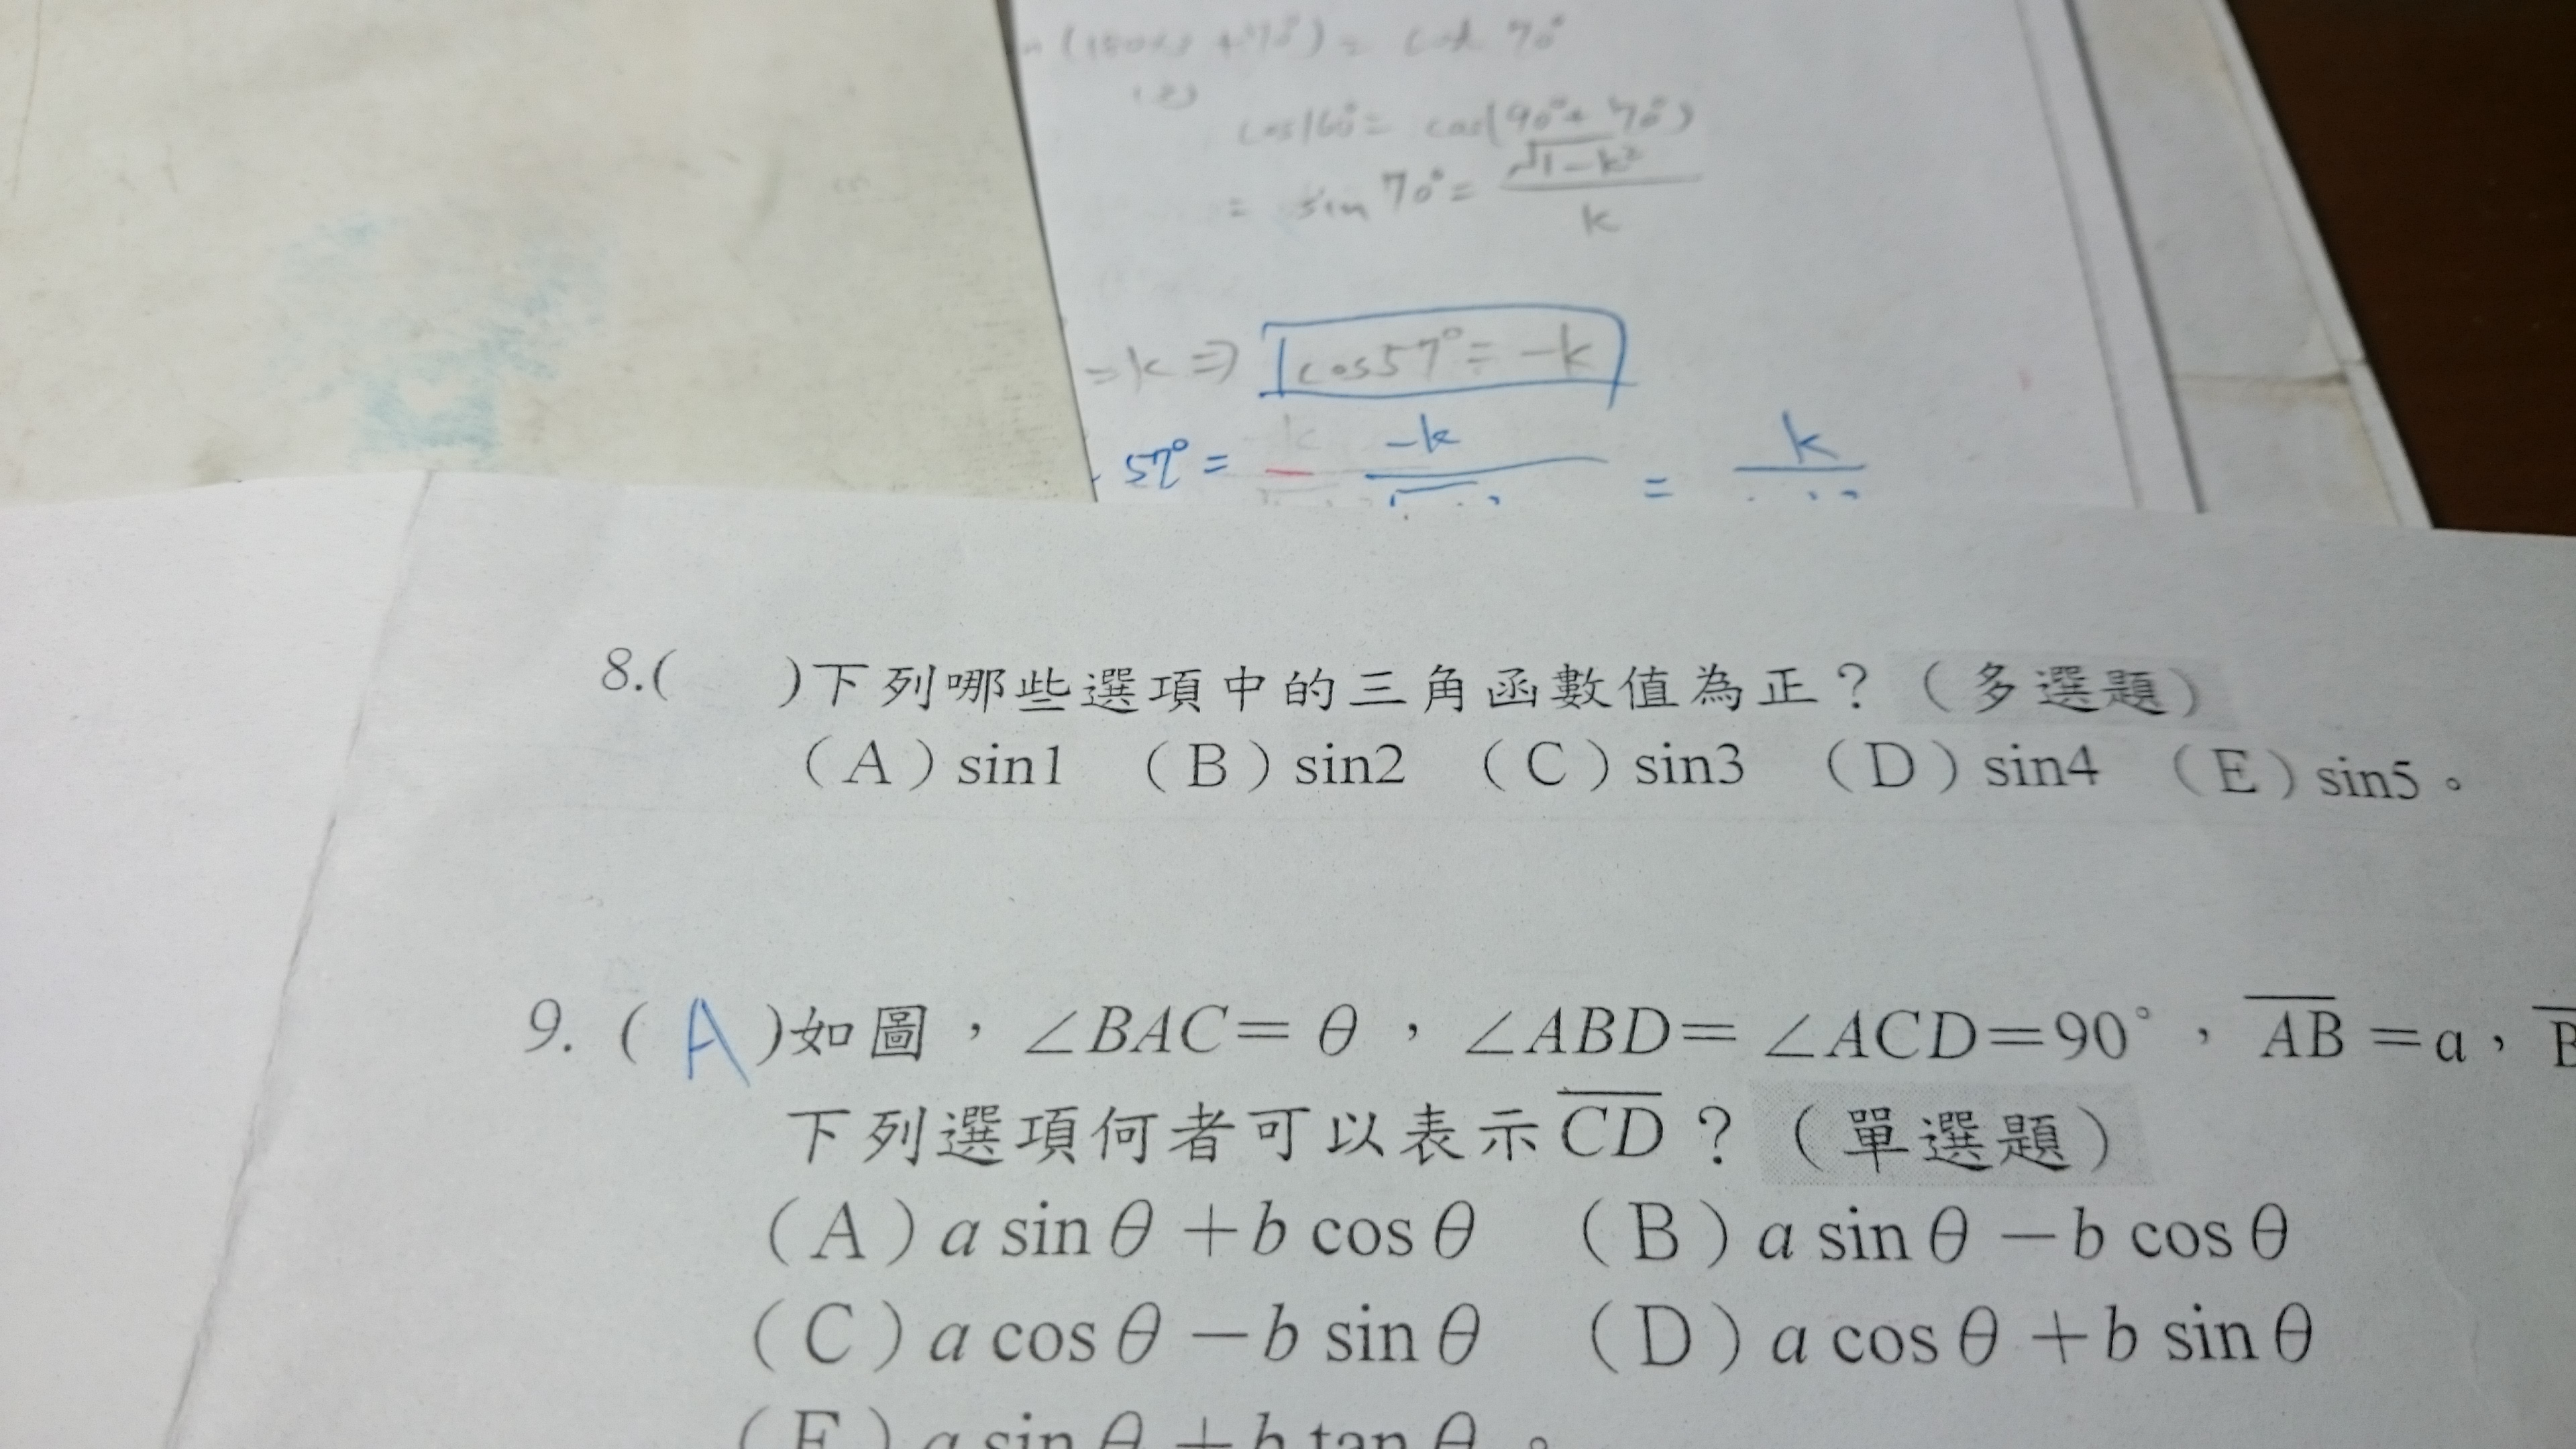 cos160°= cos(90°+70°)
= sin70°= √1-k² / k
=k ⇒ cos57°= -k
57°= -k = k
8.( )下列哪些選項中的三角函數值為正？（多選題）
（A）sin1 （B）sin2 （C）sin3 （D）sin4 （E）sin5。
9. ( A )如圖，∠BAC= θ，∠ABD= ∠ACD=90°，AB =a，B
下列選項何者可以表示CD？（單選題）
（A）a sin θ +b cos θ （B）a sin θ －b cos θ
（C）a cos θ －b sin θ （D）a cos θ +b sin θ
（E）a sin θ +b tan θ。